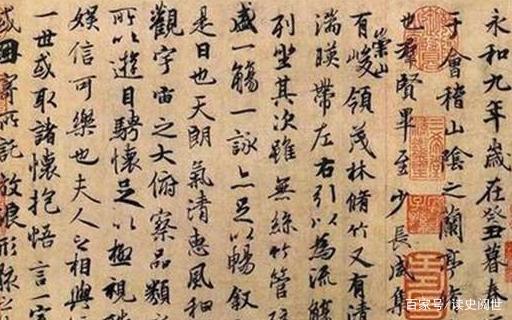 永和九年歲在癸丑暮春
于會稽山陰之蘭亭
也羣賢畢至少長咸集
有崇山峻領茂林脩竹又有清
湍暎帶左右引以為流觴
列坐其次雖無絲竹管
盛一觴一詠亦足以暢敘
是日也天朗氣清惠風和
觀宇宙之大俯察品類
所以遊目騁懷足以極視
娛信可樂也夫人之相與
一世或取諸懷抱悟言一室
或因寄所託放浪形骸之
百家号/读史阅世